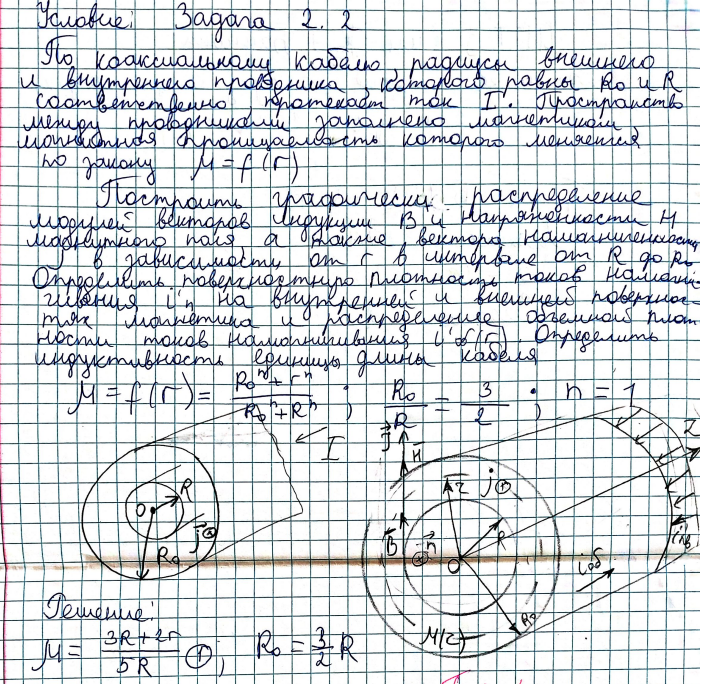 Условие: Задача 2.2
По коаксиальному кабелю, радиусы внешнего
и внутреннего проводника которого равны R₀ и R
соответственно, протекает ток I. Пространство
между проводниками заполнено магнетиком,
магнитная проницаемость которого меняется
по закону μ = f(r)
Построить графически распределение
модулей векторов индукции B и напряженности H
магнитного поля а также вектора намагниченности
J в зависимости от r в интервале от R до R₀
Определить поверхностную плотность токов намагни-
чивания i'п на внутренней и внешней поверхнос-
тях магнетика и распределение объемной плот
ности токов намагничивания i'об(r). Определить
индуктивность единицы длины кабеля
μ = f(r) = (R₀ⁿ + rⁿ)/(R₀ⁿ + Rⁿ) ; R₀/R = 3/2 ; n = 1
I
O R
R₀ j
J H
r j
B n R
O
μ(r) R₀
i'об
i'пв
Z
Решение:
μ = (3R + 2r)/5R ① ; R₀ = 3/2 R